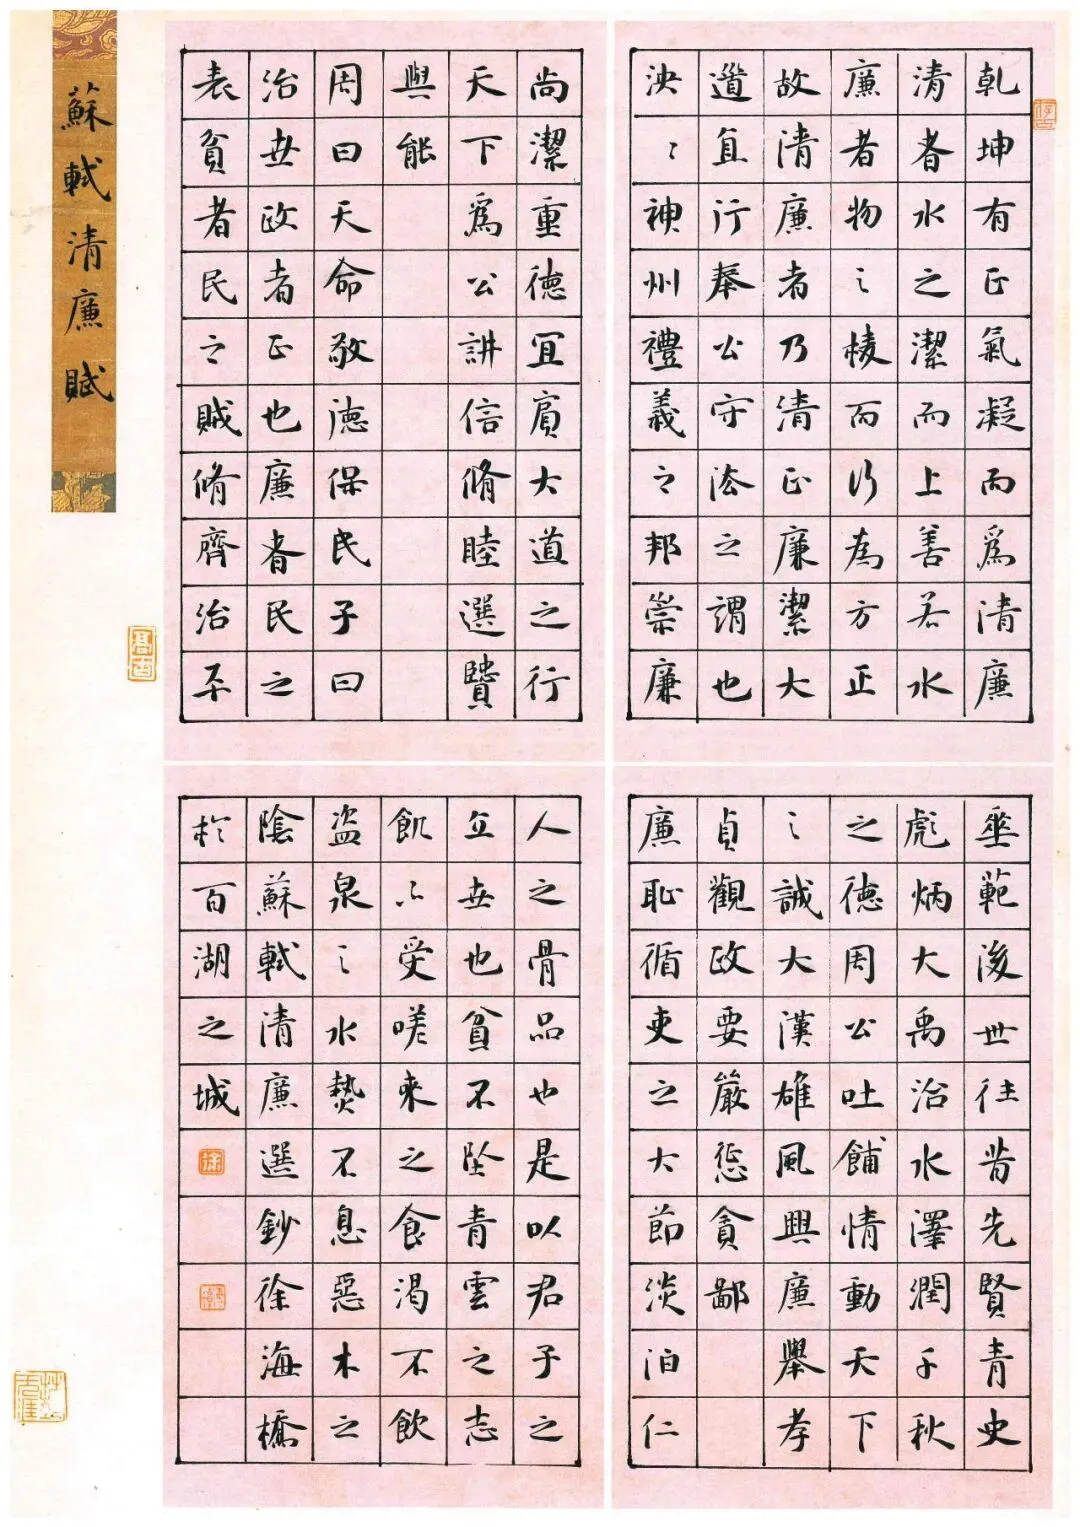 蘇軾清廉賦
乾坤有正氣凝而爲清廉
清者水之潔而上善若水
廉者物之棱而行為方正
故清廉者乃清正廉潔大
道直行奉公守法之謂也
泱〻神州禮義之邦崇廉
尚潔重德宜賓大道之行
天下爲公講信脩睦選賢
與能
周曰天命敬德保民子曰
治世政者正也廉者民之
表貧者民之賊脩齊治平
垂範後世往昔先賢青史
彪炳大禹治水澤潤千秋
之德周公吐餔情動天下
之誠大漢雄風興廉舉孝
貞觀政要嚴懲貪鄙
廉恥循吏之大節淡泊仁
人之骨品也是以君子之
立世也貧不坠青雲之志
飢不受嗟來之食渴不飲
盗泉之水熱不息惡木之
陰蘇軾清廉選鈔徐海橋
於百湖之城
徐